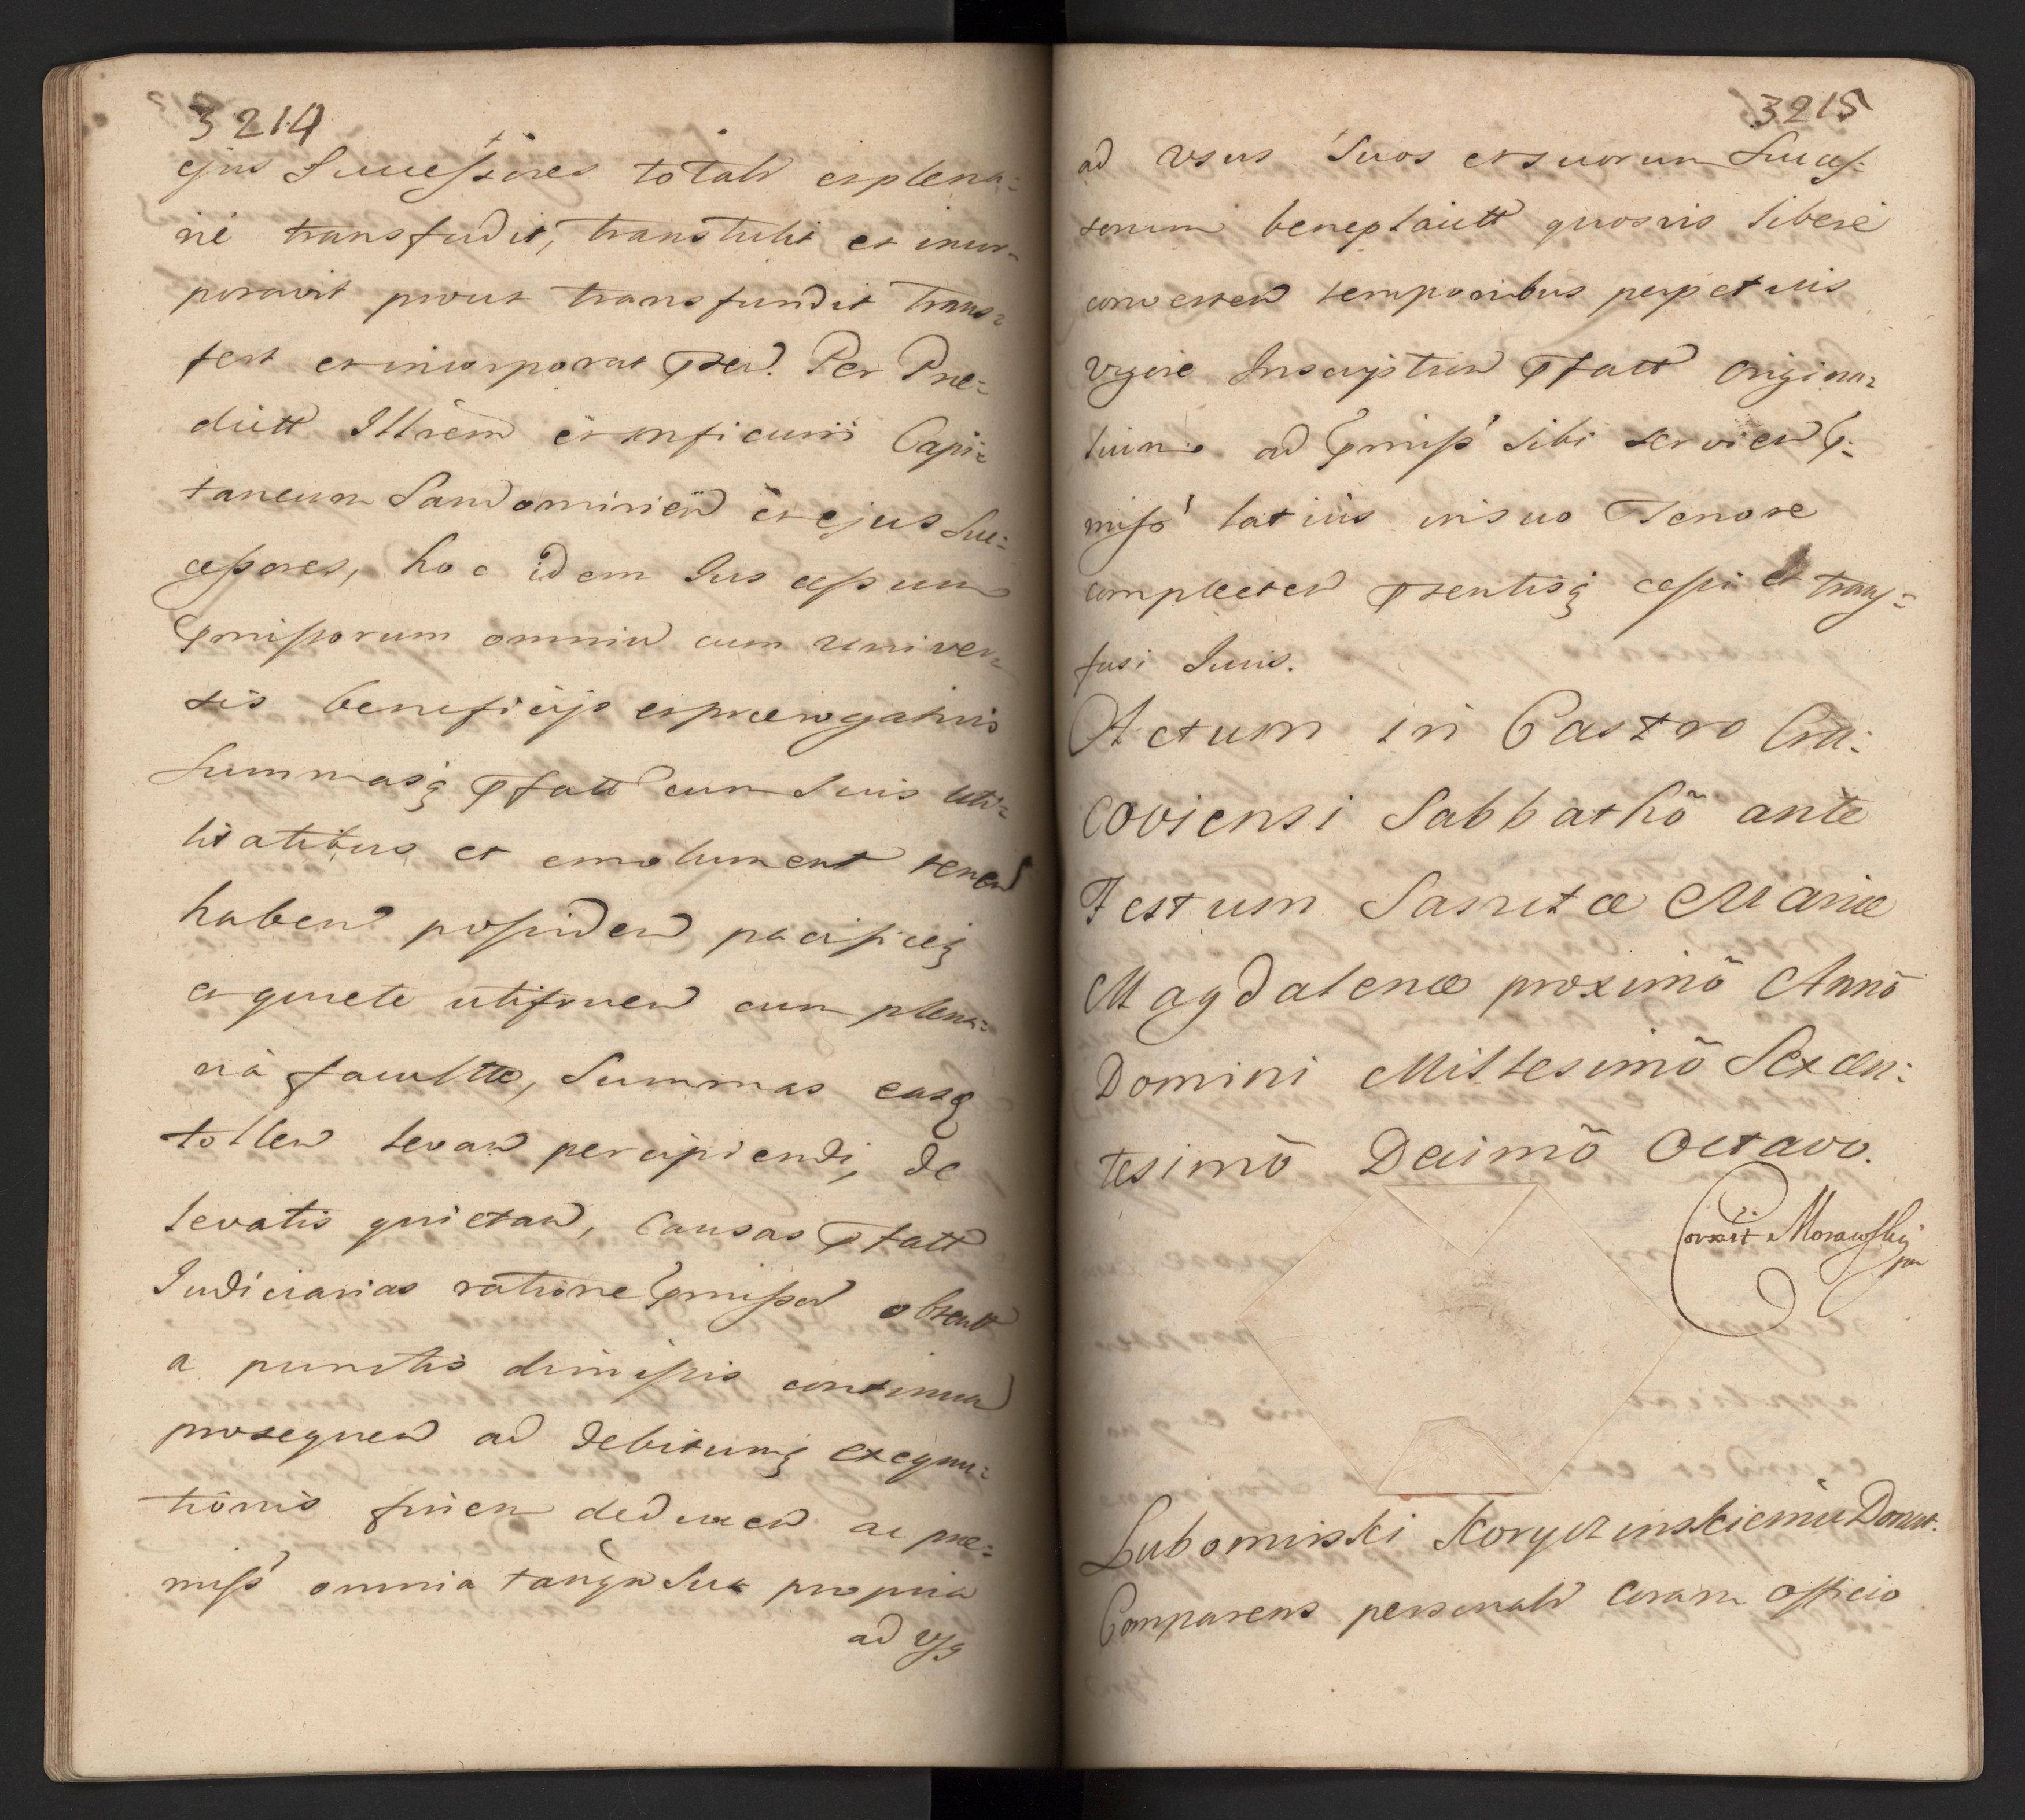 3214
ejus Successores totalr explena-
rie transfudit, transtulit et incor-
poravit prout transfundit trans-
fert et incorporat pser. Per Præ-
dictt Illrem et mficum Capi-
taneum Sandomirien et ejus Suc-
cessores, hoc idem Ius cessum
pmissorum omniu cum univer-
sis beneficijs et prærogativis
Summasq pfatt cum Suis uti-
litatibus et emolument tenen
haben possiden pacificeq
et quiete utifruen cum plena-
ria facultte, Summas easq
tollen levan percipiendi, de
levatis quietan, Causas pfatt
Iudiciarias ratione pmissor obtent
a punctis dimissis continuan
prosequen ad debitumq exequu-
tionis finem deducen ac præ-
miss omnia tanqm Sua propria
ad vsg
3215
ad vsus Suos et suorum Succes-
sorum beneplacitt quosvis libere
converten temporibus perpetuis
vigore Inscription pfatt Origina-
lium ad pmiss sibi servien p-
miss latius in suo Tenore
complecten psentisq cessi et trans-
fusi Iuris.
Actum in Castro Cra-
coviensi Sabbathô ante
Festum Sanctæ Mariæ
Magdalenæ proximô Annô
Domini Millesimô Sexcen-
tesimô Decimô Octavo.
Correxit Morawski
mp
Lubomirski Koryczinskiemu Donat.
Comparens personalr Coram Officio